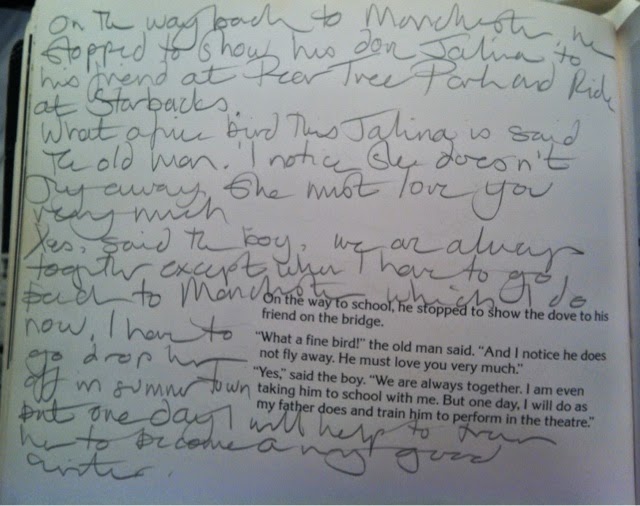 On the way back to Manchester, he
stopped to show his don Jalina to
his friend at Pear Tree Park and Ride
at Starbacks.
What a fine bird this Jalina is said
the old man. 'I notice she doesn't
fly away. She must love you
very much
Yes, said the boy, we are always
together except when I have to go
back to Manchester which I do
now, I have to
go drop her
off in summertown
but one day I will help to train
her to become a very good
writer.
On the way to school, he stopped to show the dove to his
friend on the bridge.
"What a fine bird!" the old man said. "And I notice he does
not fly away. He must love you very much."
"Yes," said the boy. "We are always together. I am even
taking him to school with me. But one day, I will do as
my father does and train him to perform in the theatre."